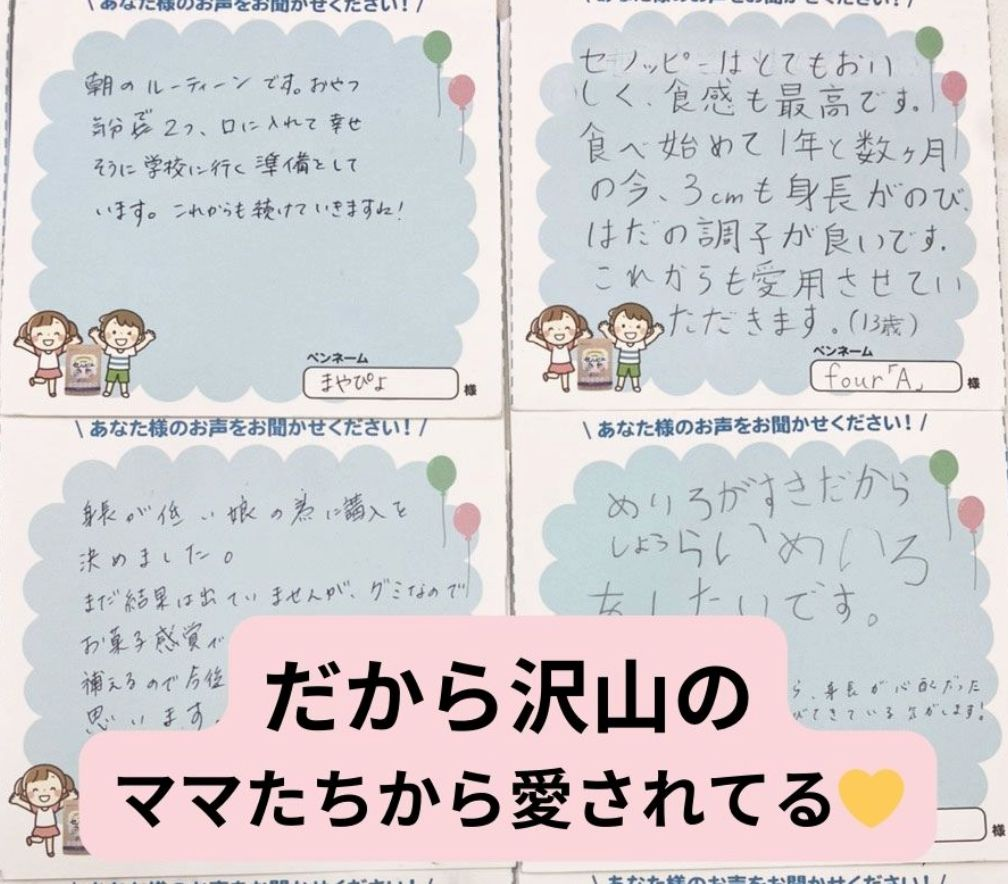 あなた様のお声をお聞かせください！
朝のルーティーンです。おやつ
気分で 2つ、口に入れて幸せ
そうに学校に行く準備をして
います。これからも続けていきますね！
ペンネーム
まやぴよ
様
あなた様のお声をお聞かせください！
セノッピーはとてもおい
しく、食感も最高です。
食べ始めて1年と数ヶ月
の今、3cmも身長がのび、
はだの調子が良いです。
これからも愛用させてい
ただきます。(13歳)
ペンネーム
four「A」
様
\ あなた様のお声をお聞かせください！ /
身長が低い娘の為に購入を
決めました。
まだ結果は出ていませんが、グミなので
お菓子感覚で
補えるので今後
思います。
\ あなた様のお声をお聞かせください！ /
めいろがすきだから
しょうらいめいろ
をしたいです。
、身長が心配だった
びてきている気がします。
様
だから沢山の
ママたちから愛されてる💛
あなた様のお声をお聞かせください！
あなた様のお声をお聞かせください！